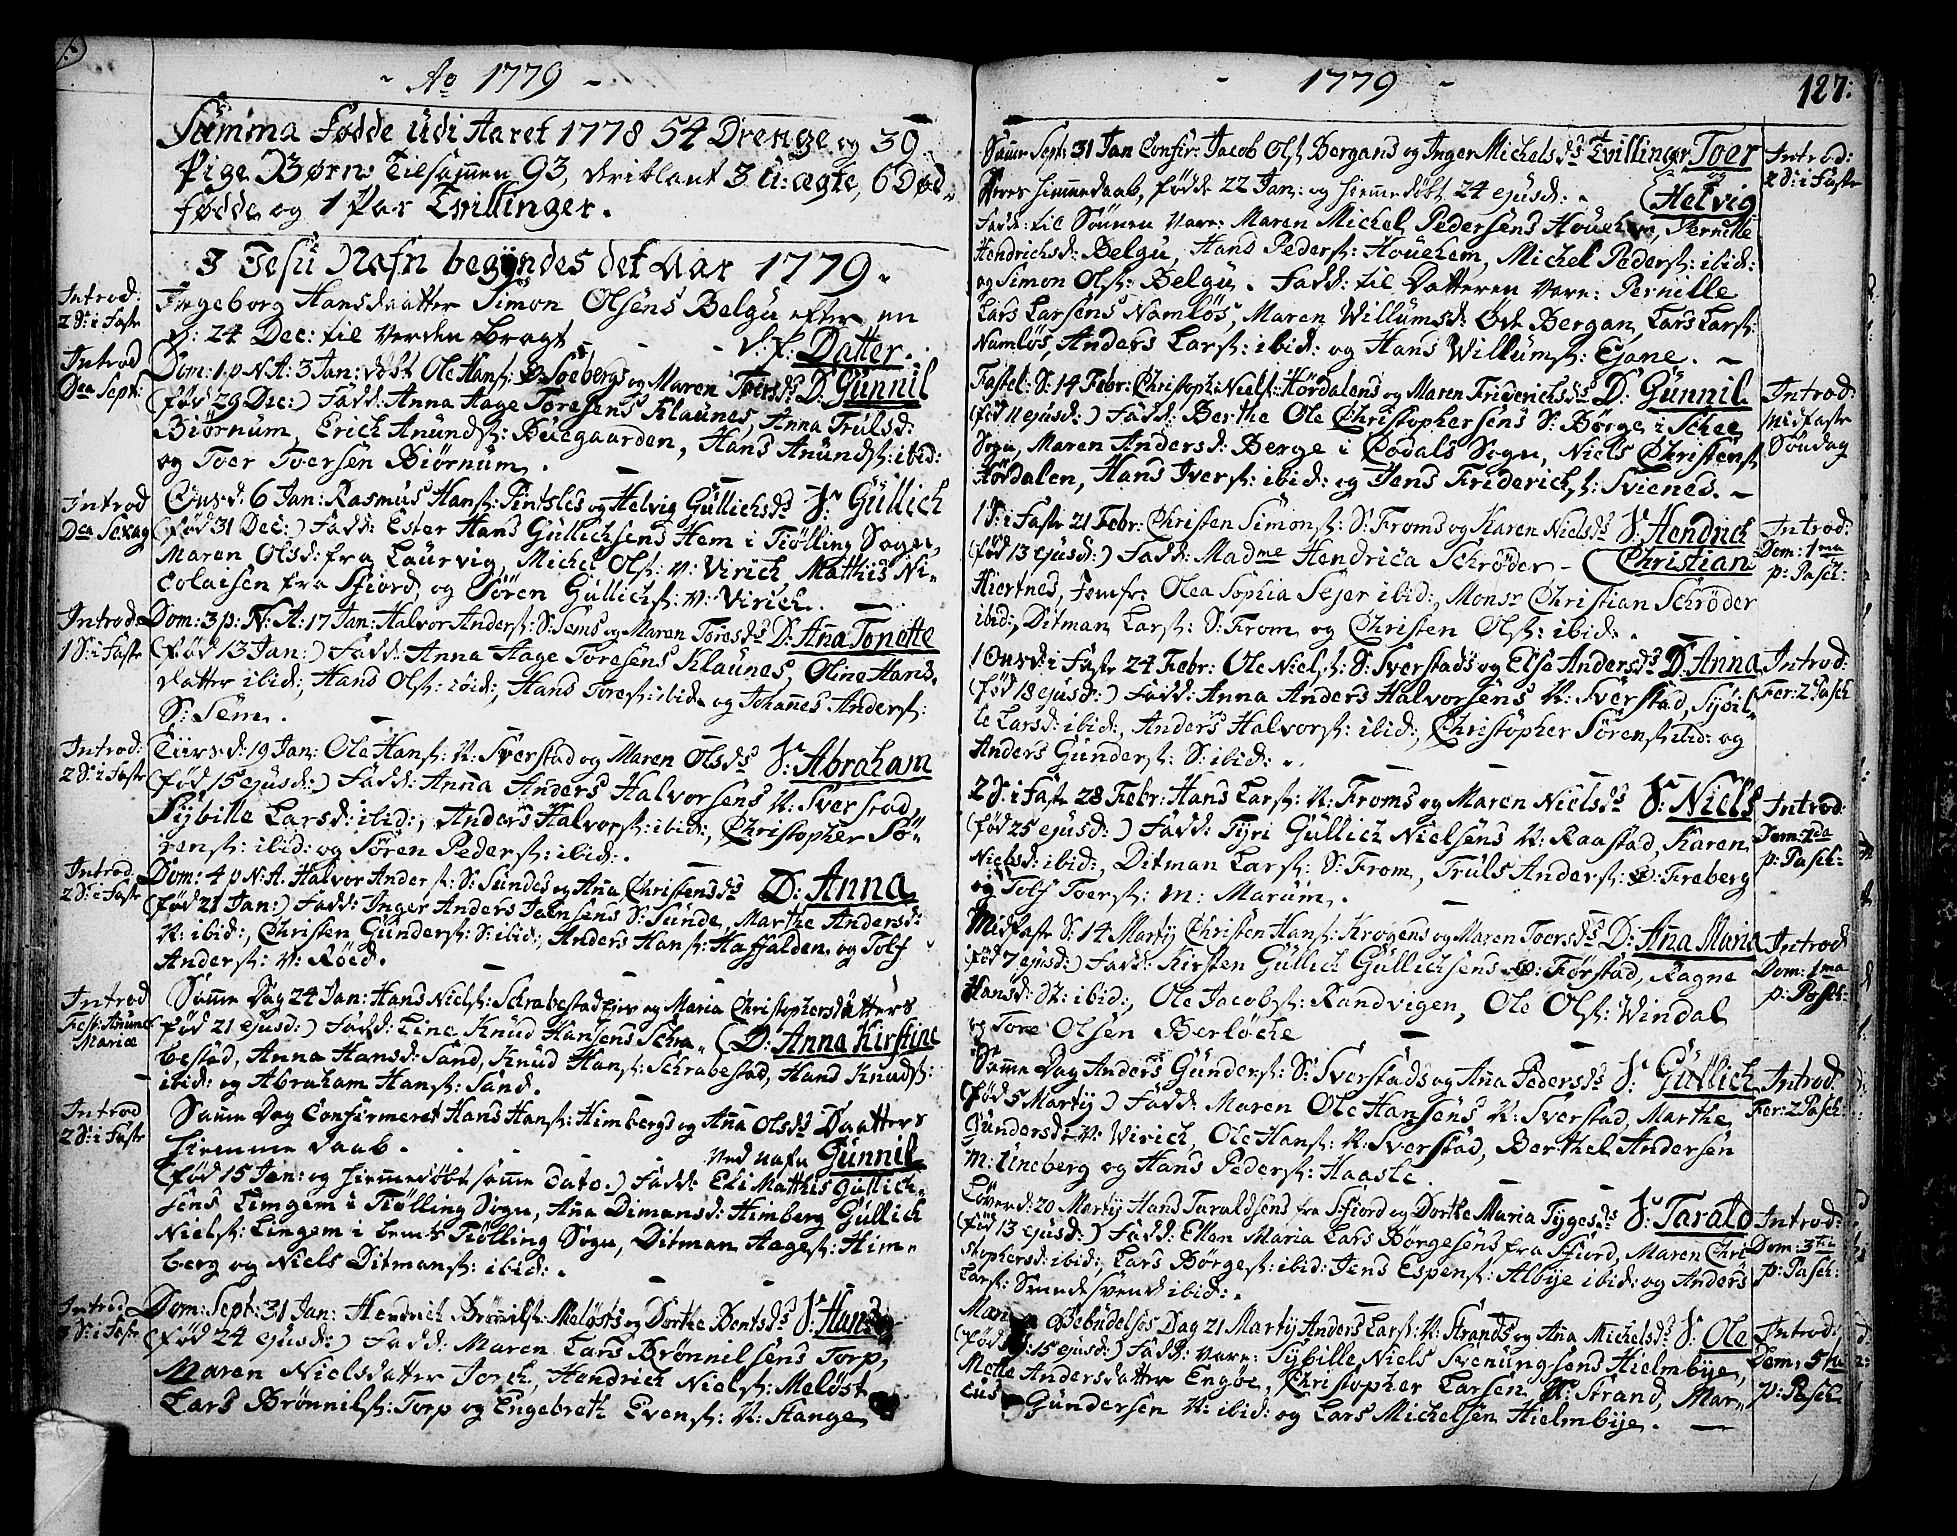 ~ Ao 1779 ~
Summa Fødde udi Aaret 1778 54 Drenge og 39
Pige Børn Tilsammen 93, deriblant 3 u:ægte, 6 Død-
fødde og 1 Par Tvillinger.
I Jesu Nafn begyndes det Aar 1779.
Introd:
2 S: i Faste
Ingeborg Hansdaatter Simon Olsens Belgu efter en
d: 24 Dec: til Verden bragt - - - d. f. Datter.
Introd
Dca Sept:
Dom: 1 p N.A: 3 Jan: døbt Ole Hans: Ø. Soebergs og Maren Toersds D. Gunnil
(fød 29 Dec:) Fadd: Anna Aage Toresens Klaunes, Anna Trulsd:
Biørnum, Erich Anunds: Buegaarden, Hans Anunds: ibid:
og Toer Toersen Biørnum.
Introd
Dca Sexag
Onsd: 6 Jan: Rasmus Hans: Pintsles og Helvig Gullichsds S. Gullich
(fød 31 Dec:) Fadd: Ester Hans Gullichsens Hem i Tiølling Sogn,
Maren Olsd: fra Laurvig, Michel Ols: V: Virich, Mathis Ni-
colaisen fra Sfiord, og Sören Gullichs: V: Virich.
Introd
1 S: i Faste
Dom: 3 p: N: A: 17 Jan: Halvor Anders: S: Sems og Maren Toresds D: Aña Tonette
(fød 13 Jan:) Fadd: Anna Aage Toresens Klaunes, Oline Hans-
datter ibid:, Hans Ols: ibid:, Hans Tores: ibid: og Johañes Anders:
S: Sem.
Introd:
2 S: i Faste
Tiirsd: 19 Jan: Ole Hans: N: Sverstad og Maren Olsds S. Abraham
(fød 15 ejusd:) Fadd: Anna Anders Halvorsens N: Sverstad,
Sybille Larsd: ibid:, Anders Halvors: ibid:, Christopher Sö-
rens: ibid: og Sören Peders: ibid:.
Introd
2 S: i Faste
Dom: 4 p N: A. Halvor Anders: S: Sundes og Aña Christensds D: Anna
(fød 21 Jan:) Fadd: Inger Anders Jensens S: Sunde, Marthe Andersd:
N: ibid:, Christen Gunders: S: ibid:, Anders Hans: Hafialden, og Tolf
Anders: V: Röed.
Introd
Fest: Anunc
Mariæ
Samme Dag 24 Jan: Hans Niels: Schrabestad Eier og Maria Christophersdatters
(fød 21 ejusd:) Fadd: Line Knud Hansens Schra- (D: Anna Kirstine
bestad, Anna Hansd: Sand, Knud Hans: Schrabestad, Hans Knuds:
ibid: og Abraham Hans: Sand.
Introd
2 S: i Faste
Samme Dag Confirmeret Hans Hans: Himbergs og Aña Olsds Daatters
Hiemme daab. - - - - ved nafn Gunnil
(fød 15 Jan: og hiemmedøbt samme Dato.) Fadd: Eli Matthis Gullich-
sens Limgem i Tiølling Sogn, Aña Dimansd: Himberg Gullich
Niels: Lingem i bemte Tiølling Sogn, Ditman Aages: Him-
berg og Niels Ditmans: ibid:.
Introd
3 S: i Faste
Dom: Sept: 31 Jan: Hendrich Brönnils: Melösts og Dorthe Bentsds S: Hans
(fød 24 ejusd:) Fadd: Maren Lars Brönnilsens Torp,
Maren Nielsdatter Jorch, Hendrich Niels: Melöst
Lars Brönnils: Torp og Engebreth Evens: N: Hange
- 1779 -
127:
Introd:
2 S: i Faste
Samme Sept: 31 Jan Confir: Jacob Ols: Bergans og Inger Michelsds Tvillinger Toer
og
Deres hiemmedaab, fødde 22 Jan: og hiemmedøbt 24 ejusd: - (Helvig
Fadd: til Sönnen vare: Maren Michel Pedersens Houehem, Pernille
Hendrichsd: Belgu, Hans Peders: Houehem, Michel Peders: ibid:
og Simon Ols: Belgu. Fadd: til Datteren vare: Pernille
Lars Larsens Namlös, Maren Willumsd: Öde Bergan, Lars Lars:
Namlös, Anders Lars: ibid: og Hans Willums: Ejane. -
Introd:
Midfaste
Söndag
Fastel: S: 14 Febr: Christoph: Niels: Hördalens og Maren Friderichsds D: Gunnil
(fød 11 ejusd:) Fadd: Berthe Ole Christophersens S: Börge i Schee
Sogn, Maren Andersd: Berge i Qvodals Sogn, Niels Christens:
Hördalen, Hans Ivers: ibid: og Jens Friderichs: Svienes. -
Introd:
Dom: 1ma
p: Pasch:
1 S: i Faste 21 Febr: Christen Simons: S: Froms og Karen Nielsds S: Hendrich
(fød 13 ejusd:) Fadd: Madme Hendrica Schröder - (Christian
Hiertnes, Jomfr: Olea Sophia Sejer ibid:, Monsr Christian Schröder
ibid:, Ditman Lars: S: From og Christen Ols: ibid:.
Introd:
Fer: 2 Pasch
1 Onsd: i Faste 24 Febr: Ole Niels: S: Sverstads og Elsa Andersds D: Anna
(fød 18 ejusd:) Fadd: Anna Anders Halvorsens N: Sverstad, Syböl-
le Larsd: ibid:, Anders Halvors: ibid:, Christopher Sörens: ibid: og
Anders Gunders: S: ibid:.
Introd:
Dom: 2da
p: Pasch:
2 S: i Faste 28 Febr: Hans Lars: N: Froms og Maren Nielsds S: Niels
(fød 25 ejusd:) Fadd: Tyri Gullich Nielsens N: Raastad, Karen
Nielsd: ibid:, Ditman Lars: S: From, Truls Anders: Ø: Freberg
og Tolf Toers: M: Marum.
Introd
Dom: 1ma
p: Pasch:
Midfaste S: 14 Martij Christen Hans: Krogens og Maren Toersds D: Aña Maria
(fød 7 ejusd:) Fadd: Kirsten Gullich Gullichsens Ø: Förstad, Ragne
Hansd: St: ibid:, Ole Jacobs: Randvigen, Ole Ols: Windal
og Tore Olsen Berlöche
Introd:
Fer: 2 Pasch:
Samme Dag Anders Gunders: S: Sverstads og Aña Pedersds S: Gullich
(fød 5 Martij) Fadd: Maren Ole Hansens N: Sverstad, Marthe
Gundersd: V: Virich, Ole Hans: N: Sverstad, Berthel Andersen
M: Uneberg og Hans Peders: Haaste.
Introd:
Dom: 3tia
p: Pasch:
Löverd: 20 Martij Hans Taraldsens fra Sfiord og Dorthe Maria Tygesds S: Tarald
(fød 13 ejusd:) Fadd: Ellen Maria Lars Börgesens fra Sfiord, Maren Chri-
stophersd: ibid:, Lars Börges: ibid: Jens Espens: Albye ibid: og Anders
Lars: Smedesvend ibid:.
Introd:
Dom: 5ta
p: Pasch:
Mariæ Bebudelses Dag 21 Martij Anders Lars: N: Strands og Aña Michelsds S: Ole
(fød 15 ejusd:) Fadd: vare: Sybille Niels Svenungsens Hielmbye,
Mette Andersdatter Engöe, Christopher Larsen N: Strand, Mar-
cus Gundersen N: ibid: og Lars Michelsen Hielmbye. -